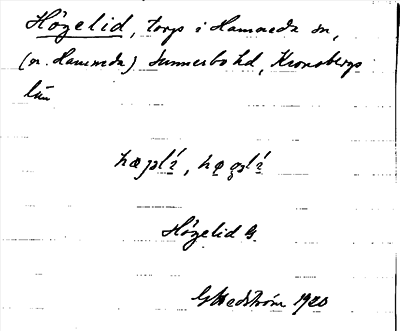 Högelid, torp i Hamneda sn,
(n. Hamneda) Sunnerbo hd, Kronobergs
län
Högelid G
G Hedström 1920